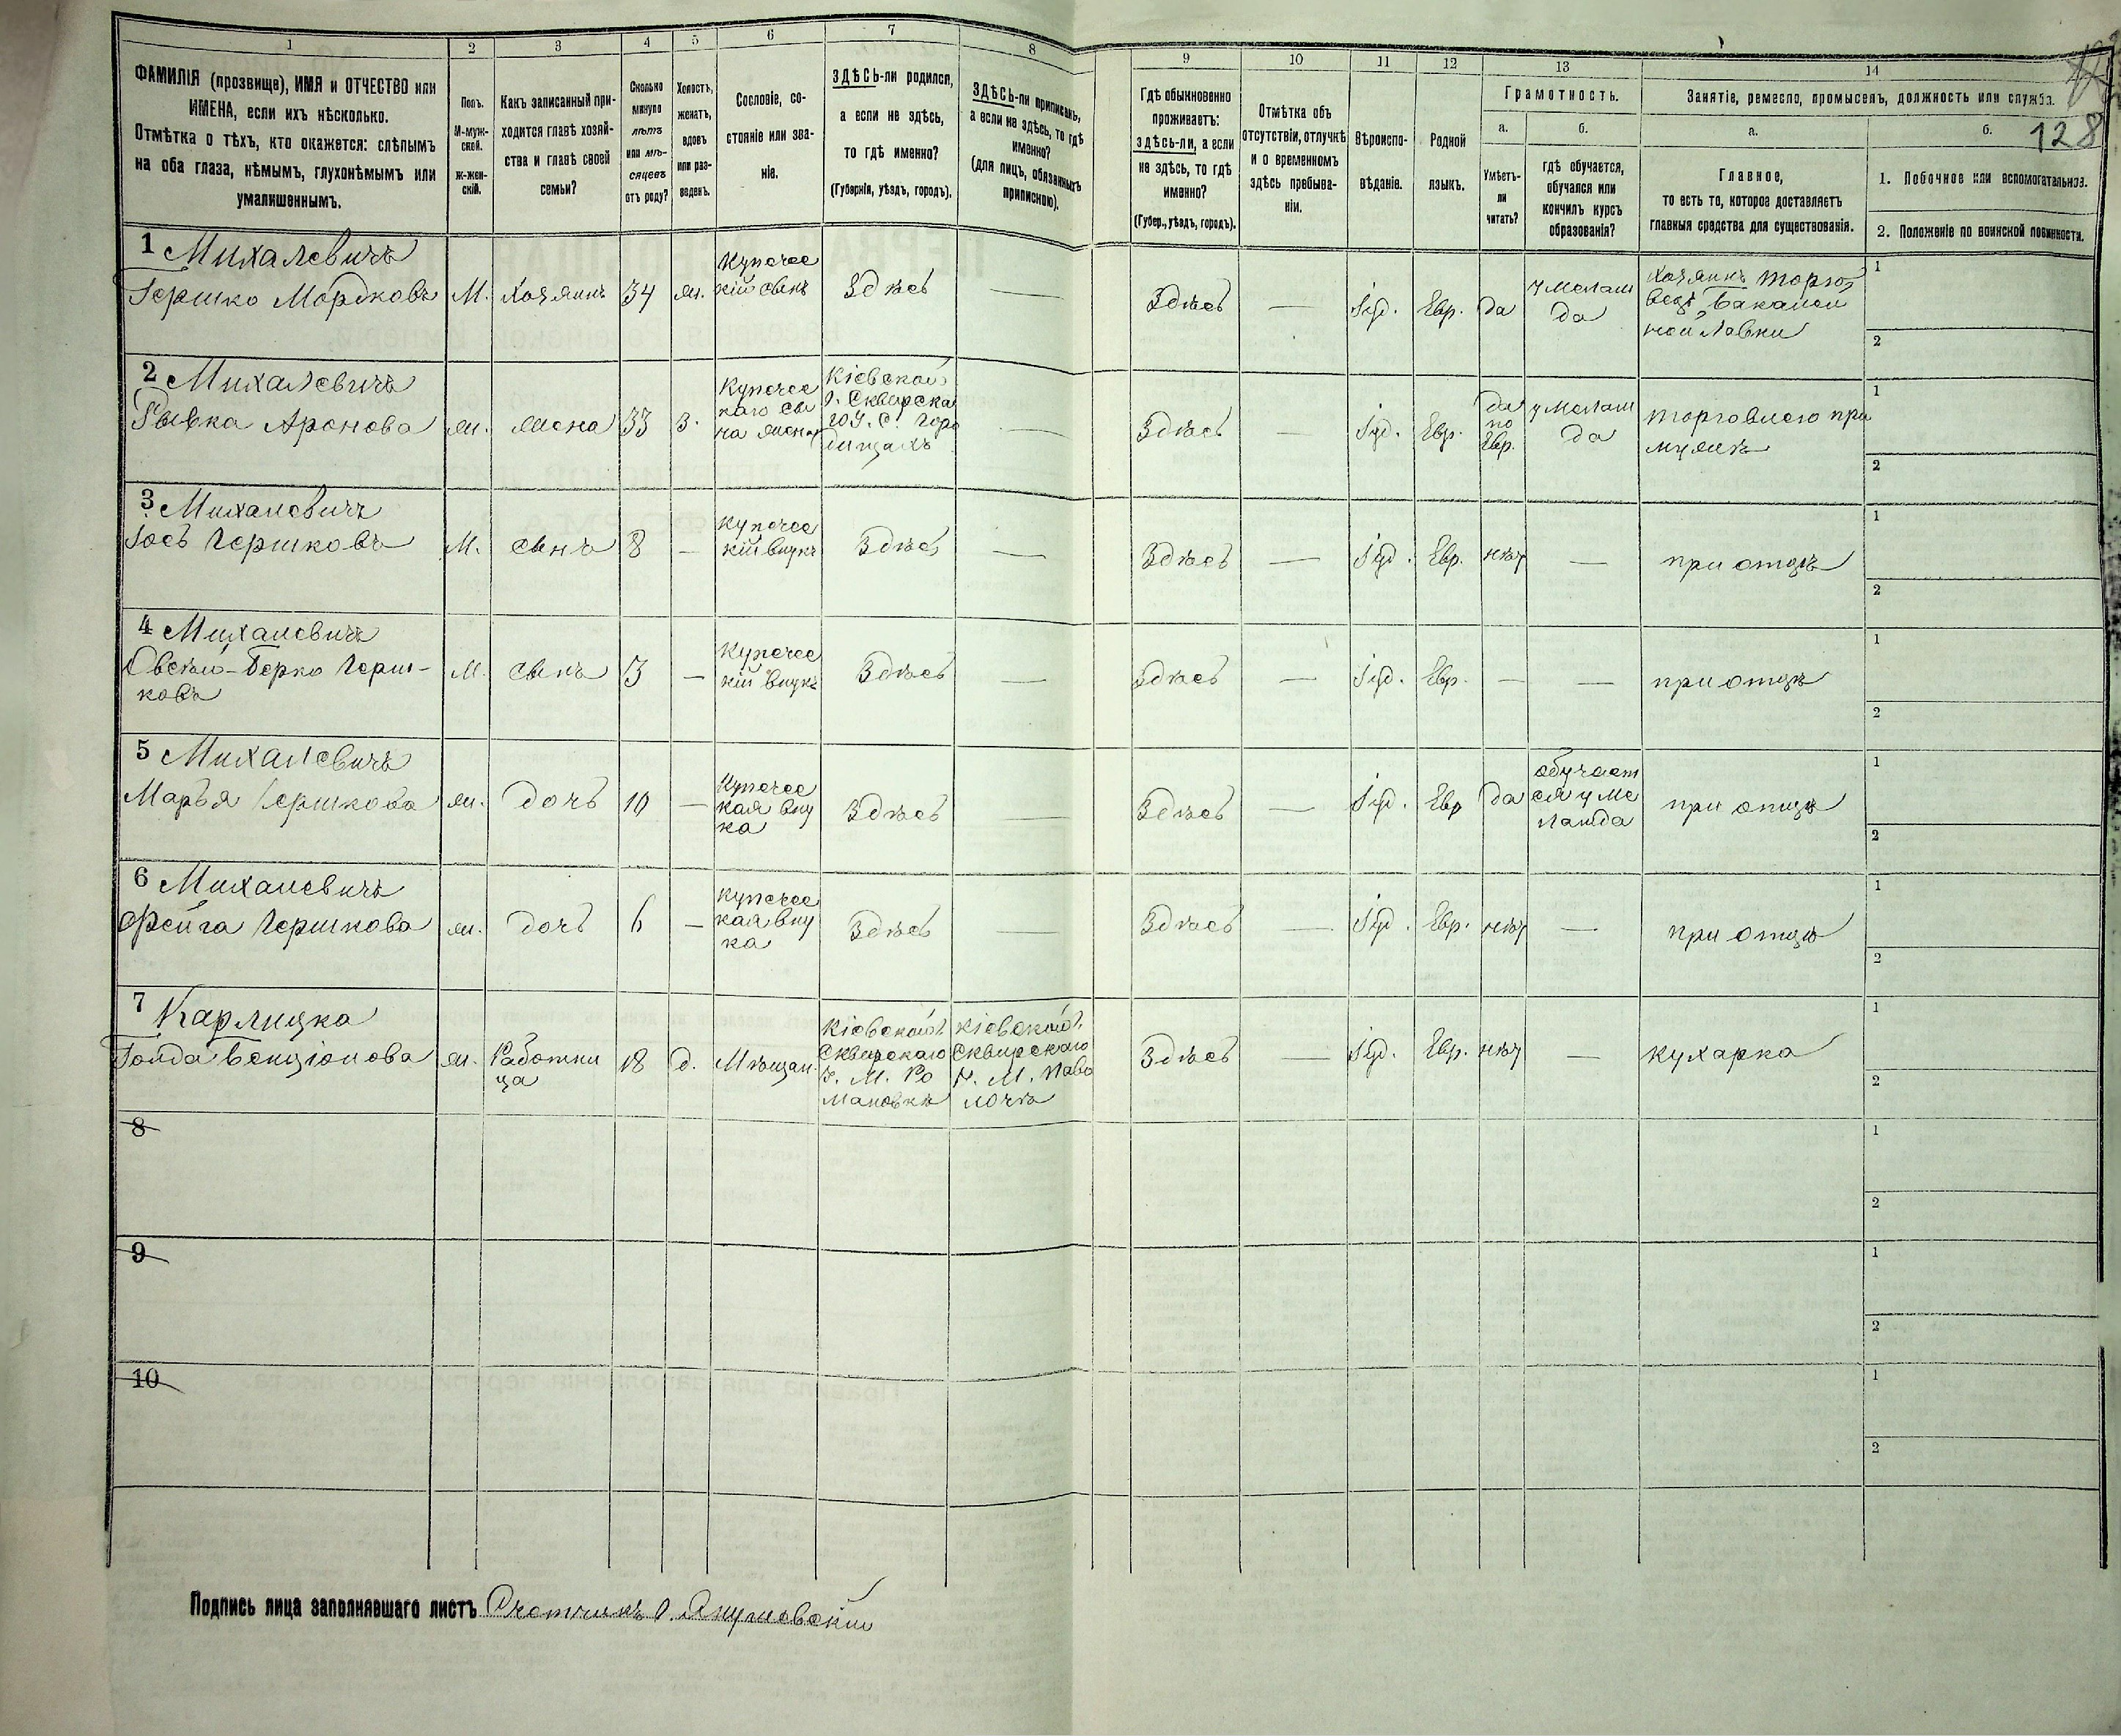 1 2 3 4 5 6 7 8 9 10 11 12 13 14
ФАМИЛІЯ (прозвище), ИМЯ и ОТЧЕСТВО или
ИМЕНА, если ихъ нѣсколько.
Отмѣтка о тѣхъ, кто окажется: слѣпымъ
на оба глаза, нѣмымъ, глухонѣмымъ или
умалишеннымъ.
Полъ.
М-муж-
ской.
Ж-жен-
скій.
Какъ записанный при-
ходится главѣ хозяй-
ства и главѣ своей
семьи?
Сколько
минуло
лѣтъ
или мѣ-
сяцевъ
отъ роду?
Холостъ,
женатъ,
вдовъ
или раз-
веденъ.
Сословіе, со-
стояніе или зва-
ніе.
ЗДѢСЬ-ли родился,
а если не здѣсь,
то гдѣ именно?
(Губернія, уѣздъ, городъ).
ЗДѢСЬ-ли приписанъ,
а если не здѣсь, то гдѣ
именно?
(для лицъ, обязанныхъ
припискою).
Гдѣ обыкновенно
проживаетъ:
здѣсь-ли, а если
не здѣсь, то гдѣ
именно?
(Губер., уѣздъ, городъ).
Отмѣтка объ
отсутствіи, отлучкѣ
и о временномъ
здѣсь пребыва-
ніи.
Вѣроиспо-
вѣданіе.
Родной
языкъ.
Грамотность.
а.
Умѣетъ-
ли
читать?
б.
гдѣ обучается,
обучался или
кончилъ курсъ
образованія?
Занятіе, ремесло, промыселъ, должность или служба.
а.
Главное,
то есть то, которое доставляетъ
главныя средства для существованія.
б.
128
1. Побочное или вспомогательное.
2. Положеніе по воинской повинности.
1 Михалевичъ
Гершко Мордковъ
М.
Хозяинъ
34
ж.
Купечес
кій сынъ
Здѣсь
—
Здѣсь
—
Іуд.
Евр.
да
у мелам
да
Хозяинъ торго
вецъ бакалей
ной лавки
1
2
2 Михалевичъ
Рывка Аронова
ж.
жена
33
З.
Купечес
каго сы
на жена
Кіевской
г. Сквирска
го у. с. Горо
дищахъ
—
Здѣсь
—
Іуд.
Евр.
да
по
Евр.
у мелам
да
торговлею при
мужѣ
1
2
3 Михалевичъ
Іосъ Гершковъ
М.
сынъ
8
—
Купечес
кій внукъ
Здѣсь
—
Здѣсь
—
Іуд.
Евр.
нѣт
—
при отцѣ
1
2
4 Михалевичъ
Овсѣй-Берко Герш-
ковъ
М.
сынъ
3
—
Купечес
кій внукъ
Здѣсь
—
Здѣсь
—
Іуд.
Евр.
—
—
при отцѣ
1
2
5 Михалевичъ
Марья Гершкова
ж.
дочь
10
—
Купечес
кая вну
ка
Здѣсь
—
Здѣсь
—
Іуд.
Евр
да
обучает
ся у ме
ламда
при отцѣ
1
2
6 Михалевичъ
Фейга Гершкова
ж.
дочь
6
—
Купечес
кая вну
ка
Здѣсь
—
Здѣсь
—
Іуд.
Евр.
нѣт
—
при отцѣ
1
2
7 Карлицка
Гольда Бенціонова
ж.
Работни
ца
18
д.
Мѣщан.
Кіевской г.
Сквирскаго
у. м. Ро
мановкѣ
Кіевской г.
Сквирскаго
у. м. Паво
лочѣ
Здѣсь
—
Іуд.
Евр.
нѣт
—
кухарка
1
2
8
1
2
9
1
2
10
1
2
Подпись лица заполнявшаго листъ Счетчикъ